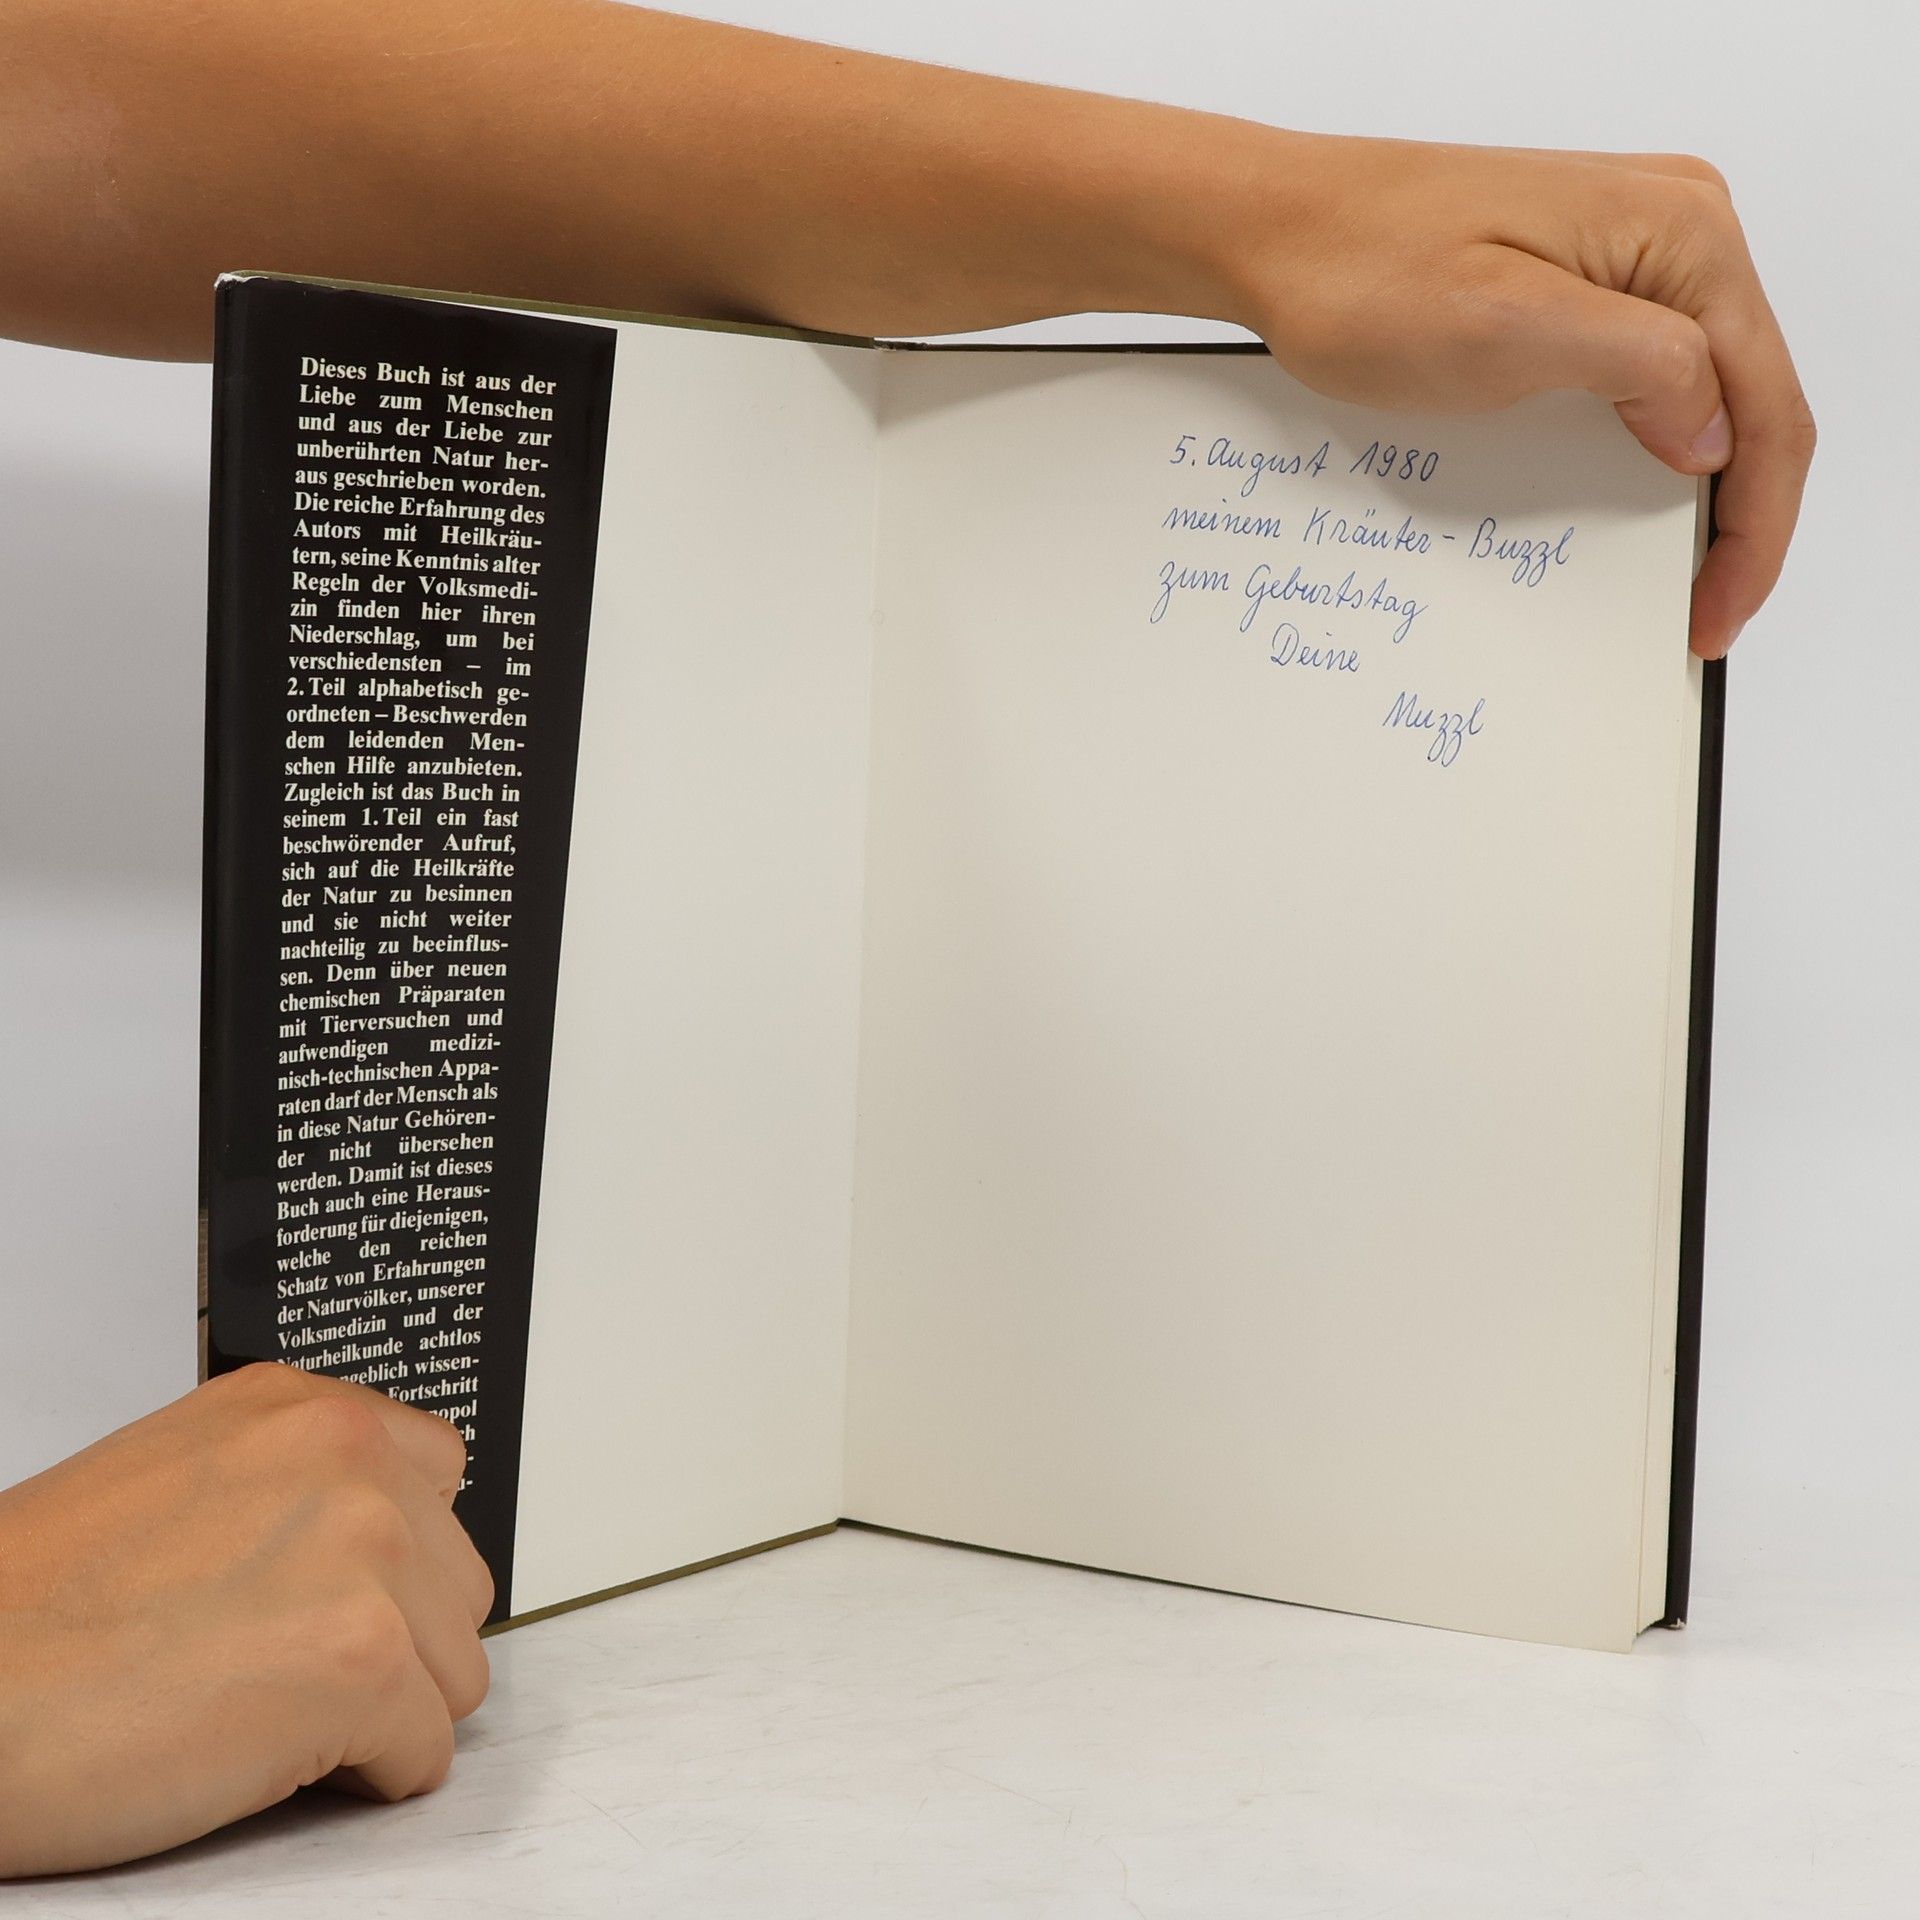 Dieses Buch ist aus der
Liebe zum Menschen
und aus der Liebe zur
unberührten Natur her-
aus geschrieben worden.
Die reiche Erfahrung des
Autors mit Heilkräu-
tern, seine Kenntnis alter
Regeln der Volksmedi-
zin finden hier ihren
Niederschlag, um bei
verschiedensten – im
2. Teil alphabetisch ge-
ordneten – Beschwerden
dem leidenden Men-
schen Hilfe anzubieten.
Zugleich ist das Buch in
seinem 1. Teil ein fast
beschwörender Aufruf,
sich auf die Heilkräfte
der Natur zu besinnen
und sie nicht weiter
nachteilig zu beeinflus-
sen. Denn über neuen
chemischen Präparaten
mit Tierversuchen und
aufwendigen medizi-
nisch-technischen Appa-
raten darf der Mensch als
in diese Natur Gehören-
der nicht übersehen
werden. Damit ist dieses
Buch auch eine Heraus-
forderung für diejenigen,
welche den reichen
Schatz von Erfahrungen
der Naturvölker, unserer
Volksmedizin und der
Naturheilkunde achtlos
wissen-
Fortschritt
5. August 1980
meinem Kräuter-Buzzl
zum Geburtstag
Deine
Muzzl